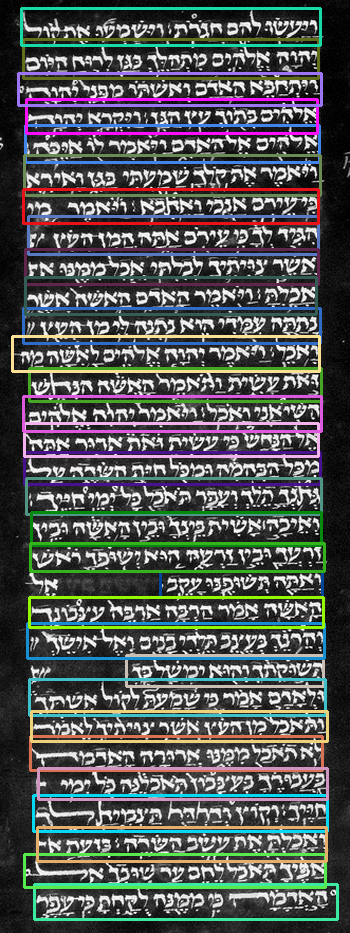 ויעשו להם חגרת וישמעו את קול
יהוה אלהים מתהלך בגן לרוח היום
ויתחבא האדם ואשתו מפני יהוה
אלהים בתוך עץ הגן ויקרא יהוה
אלהים אל האדם ויאמר לו איכה
ויאמר את קלך שמעתי בגן ואירא
כי עירם אנכי ואחבא ויאמר מי
הגיד לך כי עירם אתה המן העץ
אשר צויתיך לבלתי אכל ממנו את
אכלת ויאמר האדם האשה אשר
נתתה עמדי הוא נתנה לי מן העץ
ואכל ויאמר יהוה אלהים לאשה מה
זאת עשית ותאמר האשה הנחש
השיאני ואכל ויאמר יהוה אלהים
אל הנחש כי עשית זאת ארור אתה
מכל הבהמה ומכל חית השדה על
גחנך תלך ועפר תאכל כל ימי חייך
ואיבה אשית בינך ובין האשה ובין
זרעך ובין זרעה הוא ישופך ראש
ואתה תשופנו עקב אל
האשה אמר הרבה ארבה עצבונך
והרנך בעצב תלדי בנים ואל אישך
תשוקתך והוא ימשל בך
ולאדם אמר כי שמעת לקול אשתך
ותאכל מן העץ אשר צויתיך לאמר
לא תאכל ממנו ארורה האדמה
בעבורך בעצבון תאכלנה כל ימי
חייך וקוץ ודרדר תצמיח לך
ואכלת את עשב השדה בזעת
אפיך תאכל לחם עד שובך אל
האדמה כי ממנה לקחת כי עפר